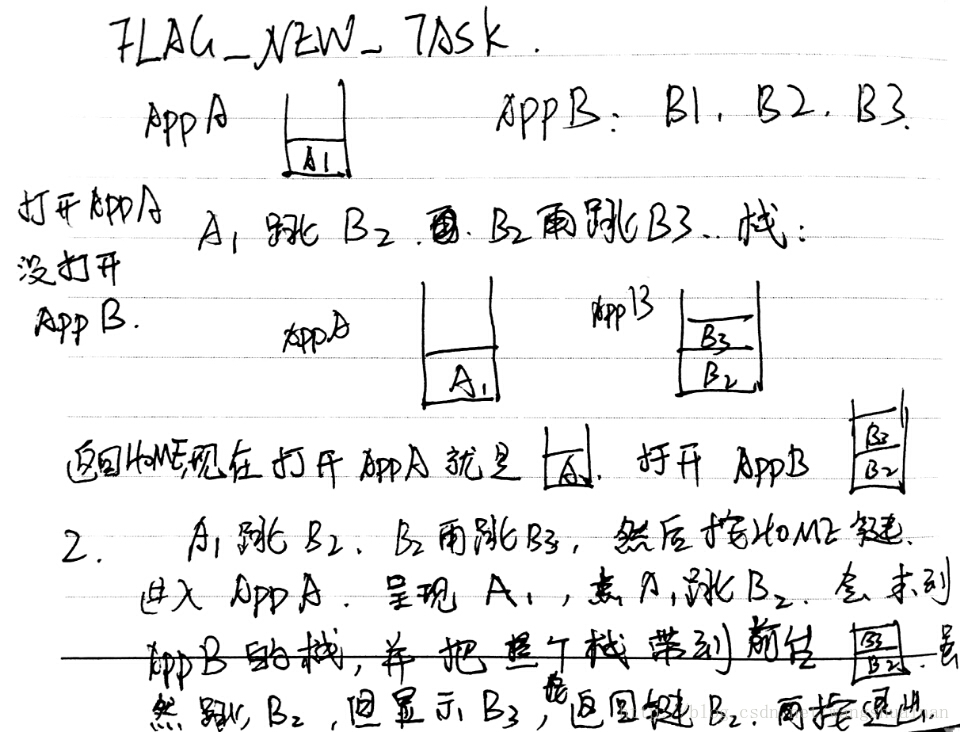 FLAG_NEW_TASK.
App A A1 App B: B1. B2. B3.
打开App A
没打开
App B.
A1 跳 B2. B2 再跳B3.. 栈:
App A A1 App B B3 B2
返回HOME,现在打开App A就是 A1. 打开 App B B3 B2
2. A1跳B2. B2再跳B3, 然后按HOME键.
进入 App A. 呈现 A1, A1跳B2. 会来到
App B的栈, 并把整个栈带到前台 B3 B2. 虽
然跳 B2, 但显示B3, 按返回键B2. 再按退出.